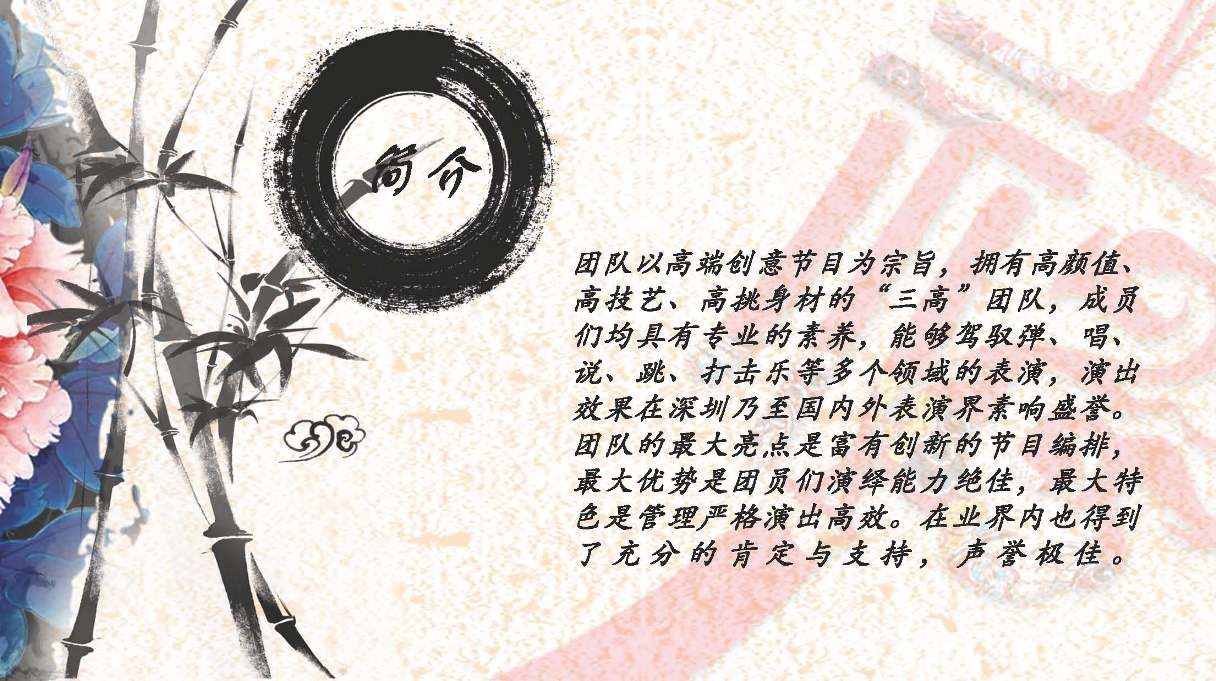 简介
团队以高端创意节目为宗旨，拥有高颜值、
高技艺、高挑身材的“三高”团队，成员
们均具有专业的素养，能够驾驭弹、唱、
说、跳、打击乐等多个领域的表演，演出
效果在深圳乃至国内外表演界素响盛誉。
团队的最大亮点是富有创新的节目编排，
最大优势是团员们演绎能力绝佳，最大特
色是管理严格演出高效。在业界内也得到
了充分的肯定与支持，声誉极佳。